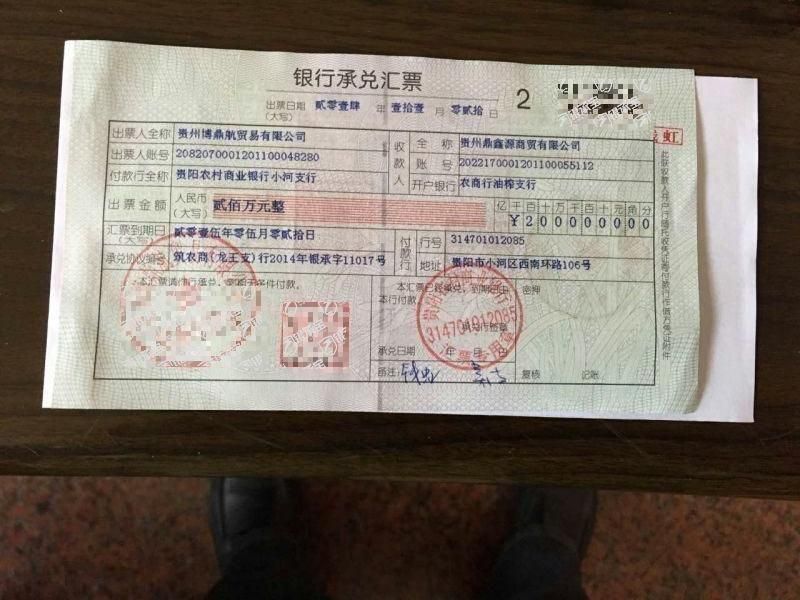 银行承兑汇票
出票日期 贰零壹肆 年 壹拾壹 月 零贰拾 日
(大写)
2
出票人全称 贵州博鼎航贸易有限公司
出票人账号 2082070001201100048280
付款行全称 贵阳农村商业银行小河支行
收款人
全称 贵州鼎鑫源商贸有限公司
账号 2022170001201100055112
开户银行 农商行油榨支行
出票金额 人民币(大写) 贰佰万元整
亿千百十万千百十元角分
¥200000000
汇票到期日(大写) 贰零壹伍年零伍月零贰拾日
付款行
行号 314701012085
承兑协议编号 筑农商(龙王支)行2014年银承字11017号
地址 贵阳市小河区西南环路106号
本汇票请你行承兑,到期无条件付款。
本汇票已经承兑,到期日由本行付款
密押
314701012085
汇票专用章
承兑行签章
承兑日期 年 月 日
备注:
复核 记账
此联收款人开户行随托收凭证寄付款行作借方凭证附件